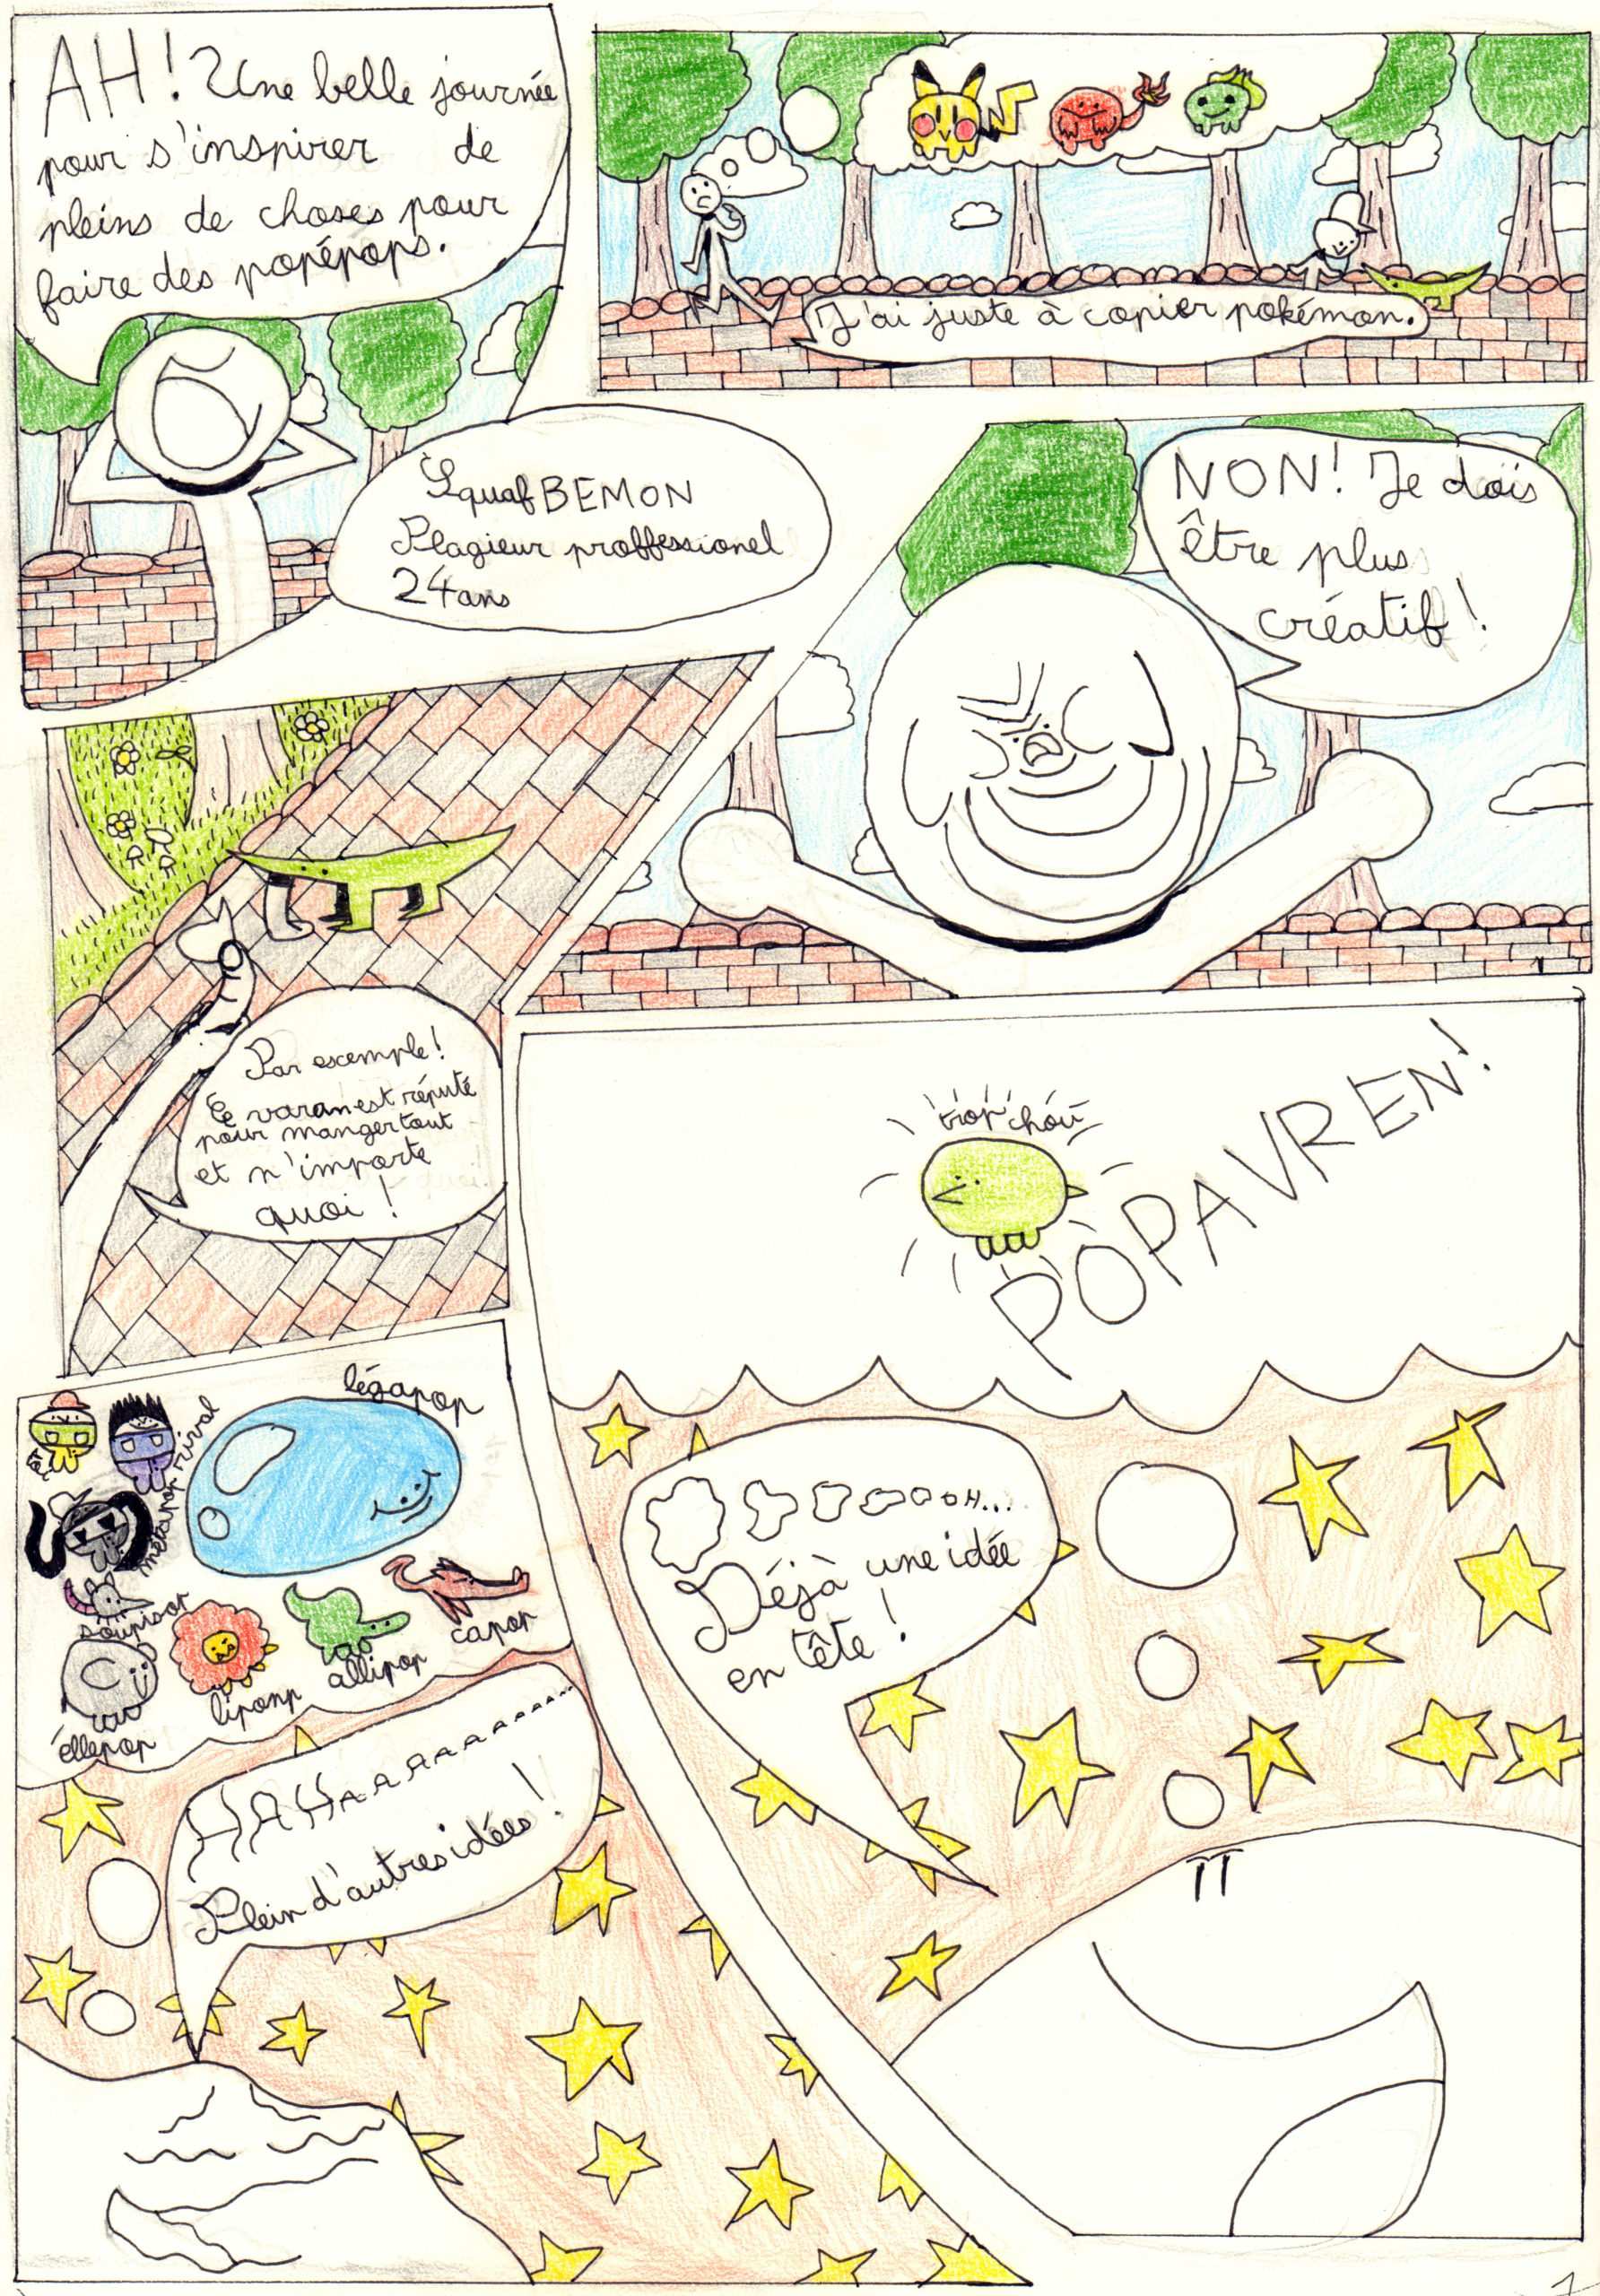 AH! Une belle journée
pour s'inspirer de
pleins de choses pour
faire des popépops.
J'ai juste à copier pokémon.
Squaf BEMON
Plagieur proffessionel
24 ans
NON! Je dois
être plus
créatif!
Par escemple!
Le varan est réputé
pour manger tout
et n'importe
quoi!
trop chou
POPAVREN!
OOOOOOOH...
Déjà une idée
en tête!
légapop
rival
métapop
soupisot
éllepop
liponp
allipop
capop
HAHAAAAAAAAAA...
Plein d'autres idées!
1